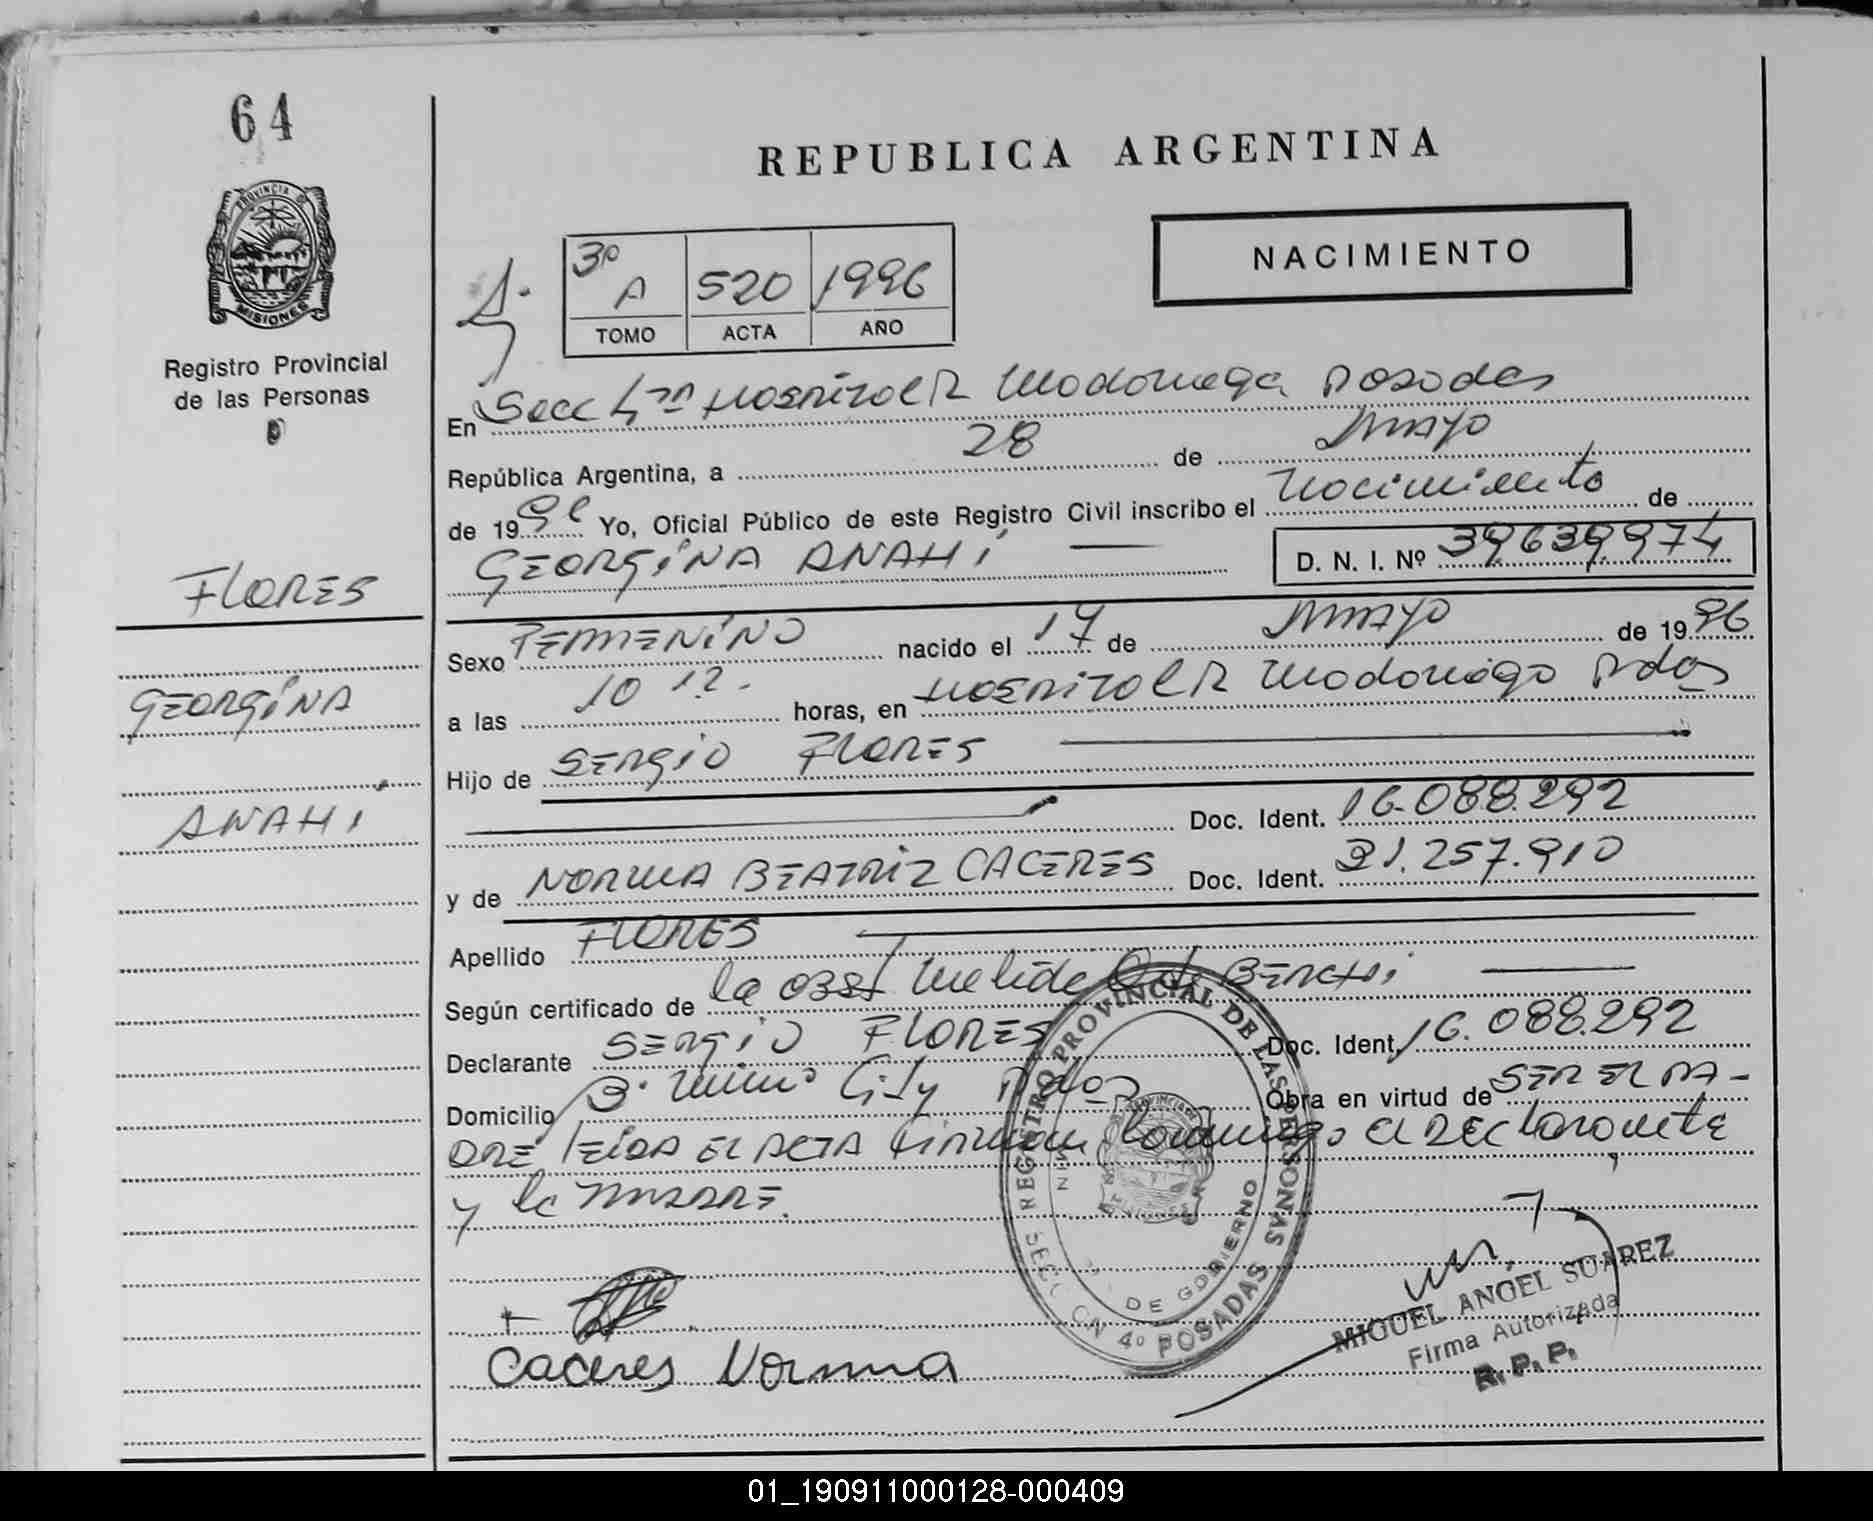 64
REPUBLICA ARGENTINA
NACIMIENTO
PROVINCIA DE
MISIONES
Registro Provincial
de las Personas
3º A 520 1996
TOMO ACTA AÑO
En Secc 4ta Hospital R Madariaga Posadas
República Argentina, a 28 de Mayo
de 1996 Yo, Oficial Público de este Registro Civil inscribo el Nacimiento de
GEORGINA ANAHI D. N. I. Nº 39.639.974
FLORES
GEORGINA
ANAHI
Sexo FEMENINO nacido el 17 de Mayo de 1996
a las 10 12 horas, en Hospital R Madariaga Pdas
Hijo de SERGIO FLORES
Doc. Ident. 16.088.292
y de NORMA BEATRIZ CACERES Doc. Ident. 21.257.910
Apellido FLORES
Según certificado de la OBST BERCHI
Declarante SERGIO FLORES Doc. Ident. 16.088.292
Domicilio Pdas Obra en virtud de SER EL PA-
DRE LEIDA EL ACTA Firman conmigo el DEClarante
y la MADRE.
REGISTRO PROVINCIAL DE LAS PERSONAS
DE GOBIERNO
SECCION 4º POSADAS
Caceres Norma
MIGUEL ANGEL SUAREZ
Firma Autorizada
R. P. P.
01_190911000128-000409